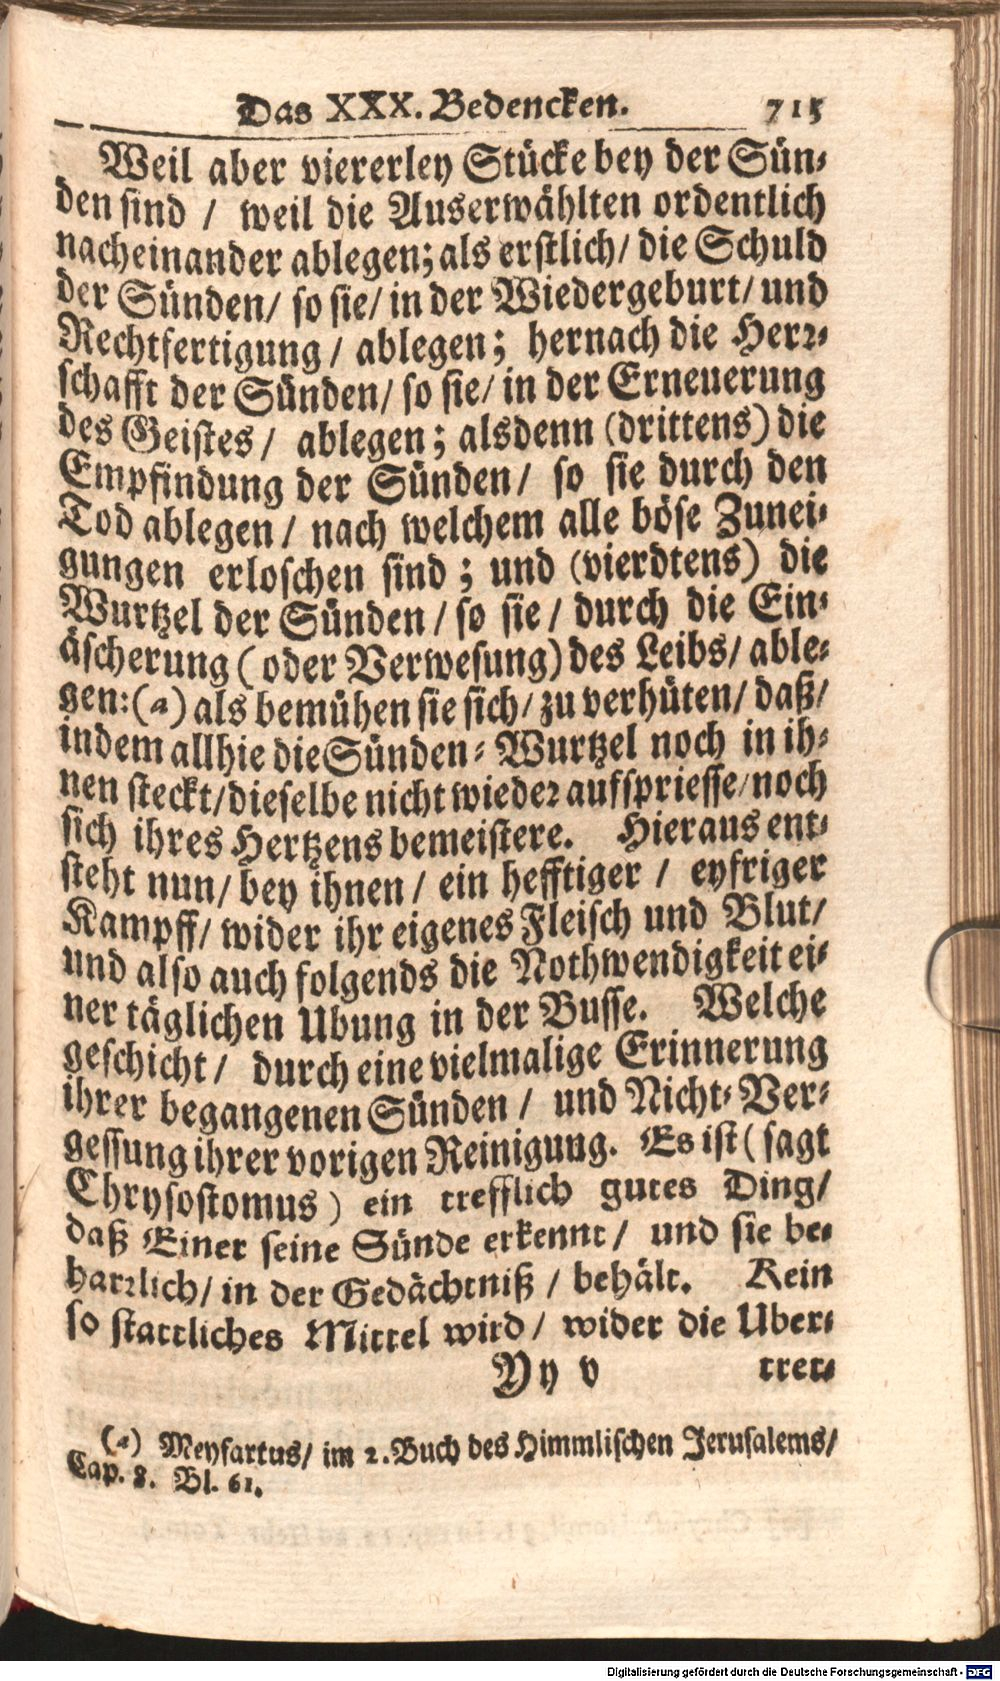 Das XXX. Bedencken. 715
Weil aber viererley Stücke bey der Sün-
den sind / weil die Auserwählten ordentlich
nacheinander ablegen; als erstlich/ die Schuld
der Sünden/ so sie/ in der Wiedergeburt/ und
Rechtfertigung / ablegen; hernach die Herr-
schafft der Sünden/ so sie/ in der Erneuerung
des Geistes / ablegen; alsdenn (drittens) die
Empfindung der Sünden/ so sie durch den
Tod ablegen / nach welchem alle böse Zunei-
gungen erloschen sind; und (vierdtens) die
Wurtzel der Sünden / so sie / durch die Ein-
äscherung (oder Verwesung) des Leibs/ able-
gen: (a) als bemühen sie sich/ zu verhüten/ daß/
indem allhie die Sünden-Wurtzel noch in ih-
nen steckt/ dieselbe nicht wieder aufspriesse/ noch
sich ihres Hertzens bemeistere. Hieraus ent-
steht nun/ bey ihnen / ein hefftiger / eyfriger
Kampff/ wider ihr eigenes Fleisch und Blut/
und also auch folgends die Nothwendigkeit ei-
ner täglichen Ubung in der Busse. Welche
geschicht/ durch eine vielmalige Erinnerung
ihrer begangenen Sünden / und Nicht-Ver-
gessung ihrer vorigen Reinigung. Es ist (sagt
Chrysostomus) ein trefflich gutes Ding/
daß Einer seine Sünde erkennt/ und sie be-
harrlich/ in der Gedächtniß / behält. Kein
so stattliches Mittel wird/ wider die Uber-
Yy v tret-
(a) Meyfartus/ im 2. Buch des Himmlischen Jerusalems/
Cap. 8. Bl. 61.
Digitalisierung gefördert durch die Deutsche Forschungsgemeinschaft - DFG